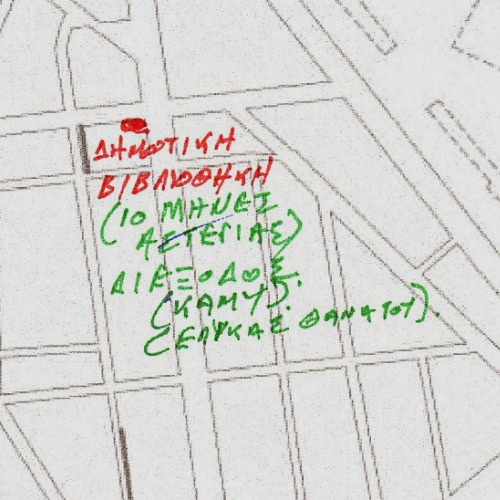 ΔΗΜΟΤΙΚΗ
ΒΙΒΛΙΟΘΗΚΗ
(10 ΜΗΝΕΣ
ΑΣΤΕΓΙΑΣ)
ΔΙΕΞΟΔΟΣ.
(ΚΑΜΥ).
(ΕΛΥΚΑΣ ΘΑΝΑΤΟΥ).